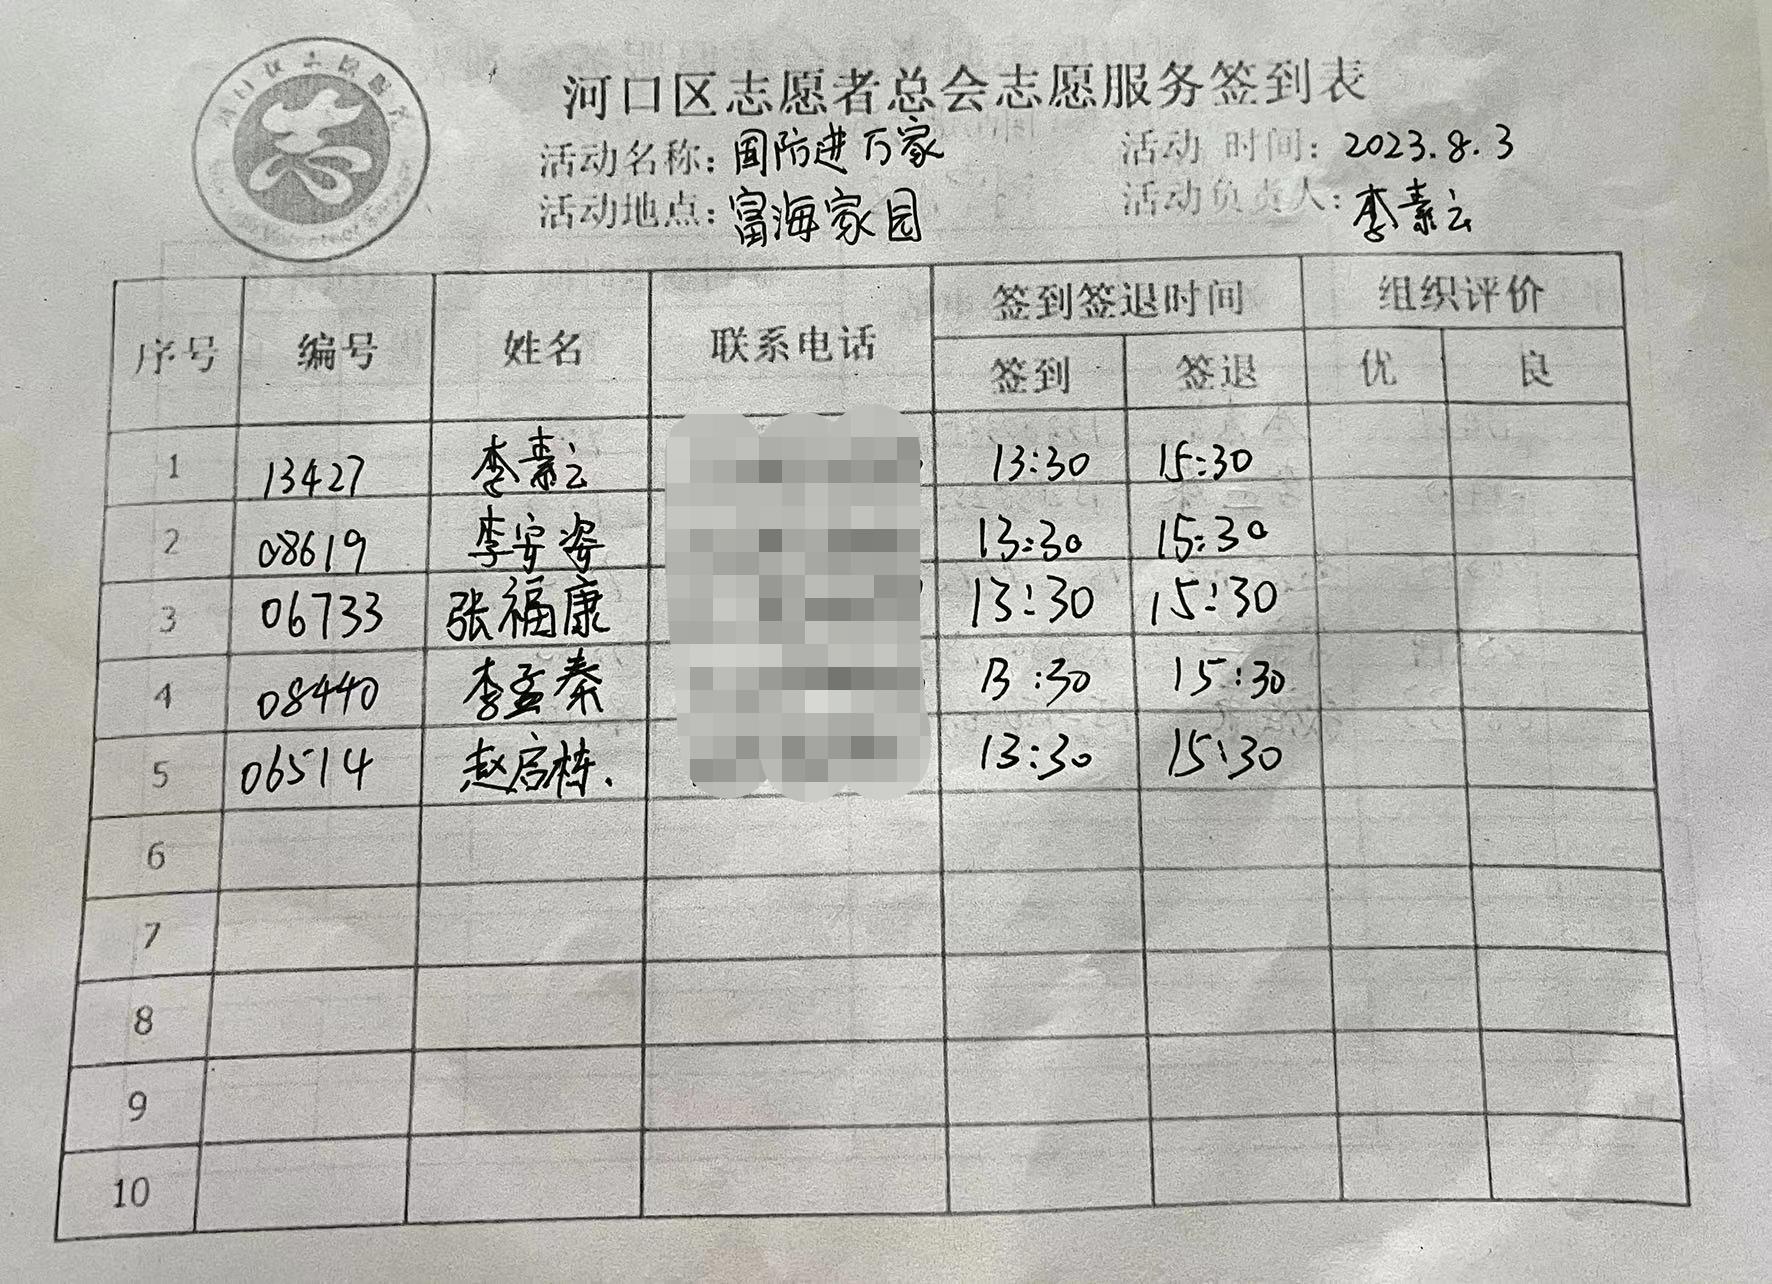 河口区志愿者总会志愿服务签到表
活动名称：国防进万家 活动 时间：2023.8.3
活动地点：富海家园 活动负责人：李素云
序号 编号 姓名 联系电话 签到签退时间 组织评价
签到 签退 优 良
1 13427 李素云 13:30 15:30
2 08619 李安姿 13:30 15:30
3 06733 张福康 13:30 15:30
4 08440 李孟秦 13:30 15:30
5 06514 赵启栋. 13:30 15:30
6
7
8
9
10